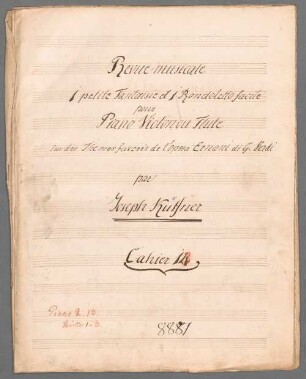 Revue musicale
1 petite Fantaisie et 1 Rondoletto facile
pour
Piano Violon ou Flute
sur des Themes favoris de l'opera Ernani di G. Verdi
par
Joseph Küffner
Cahier 14
8881